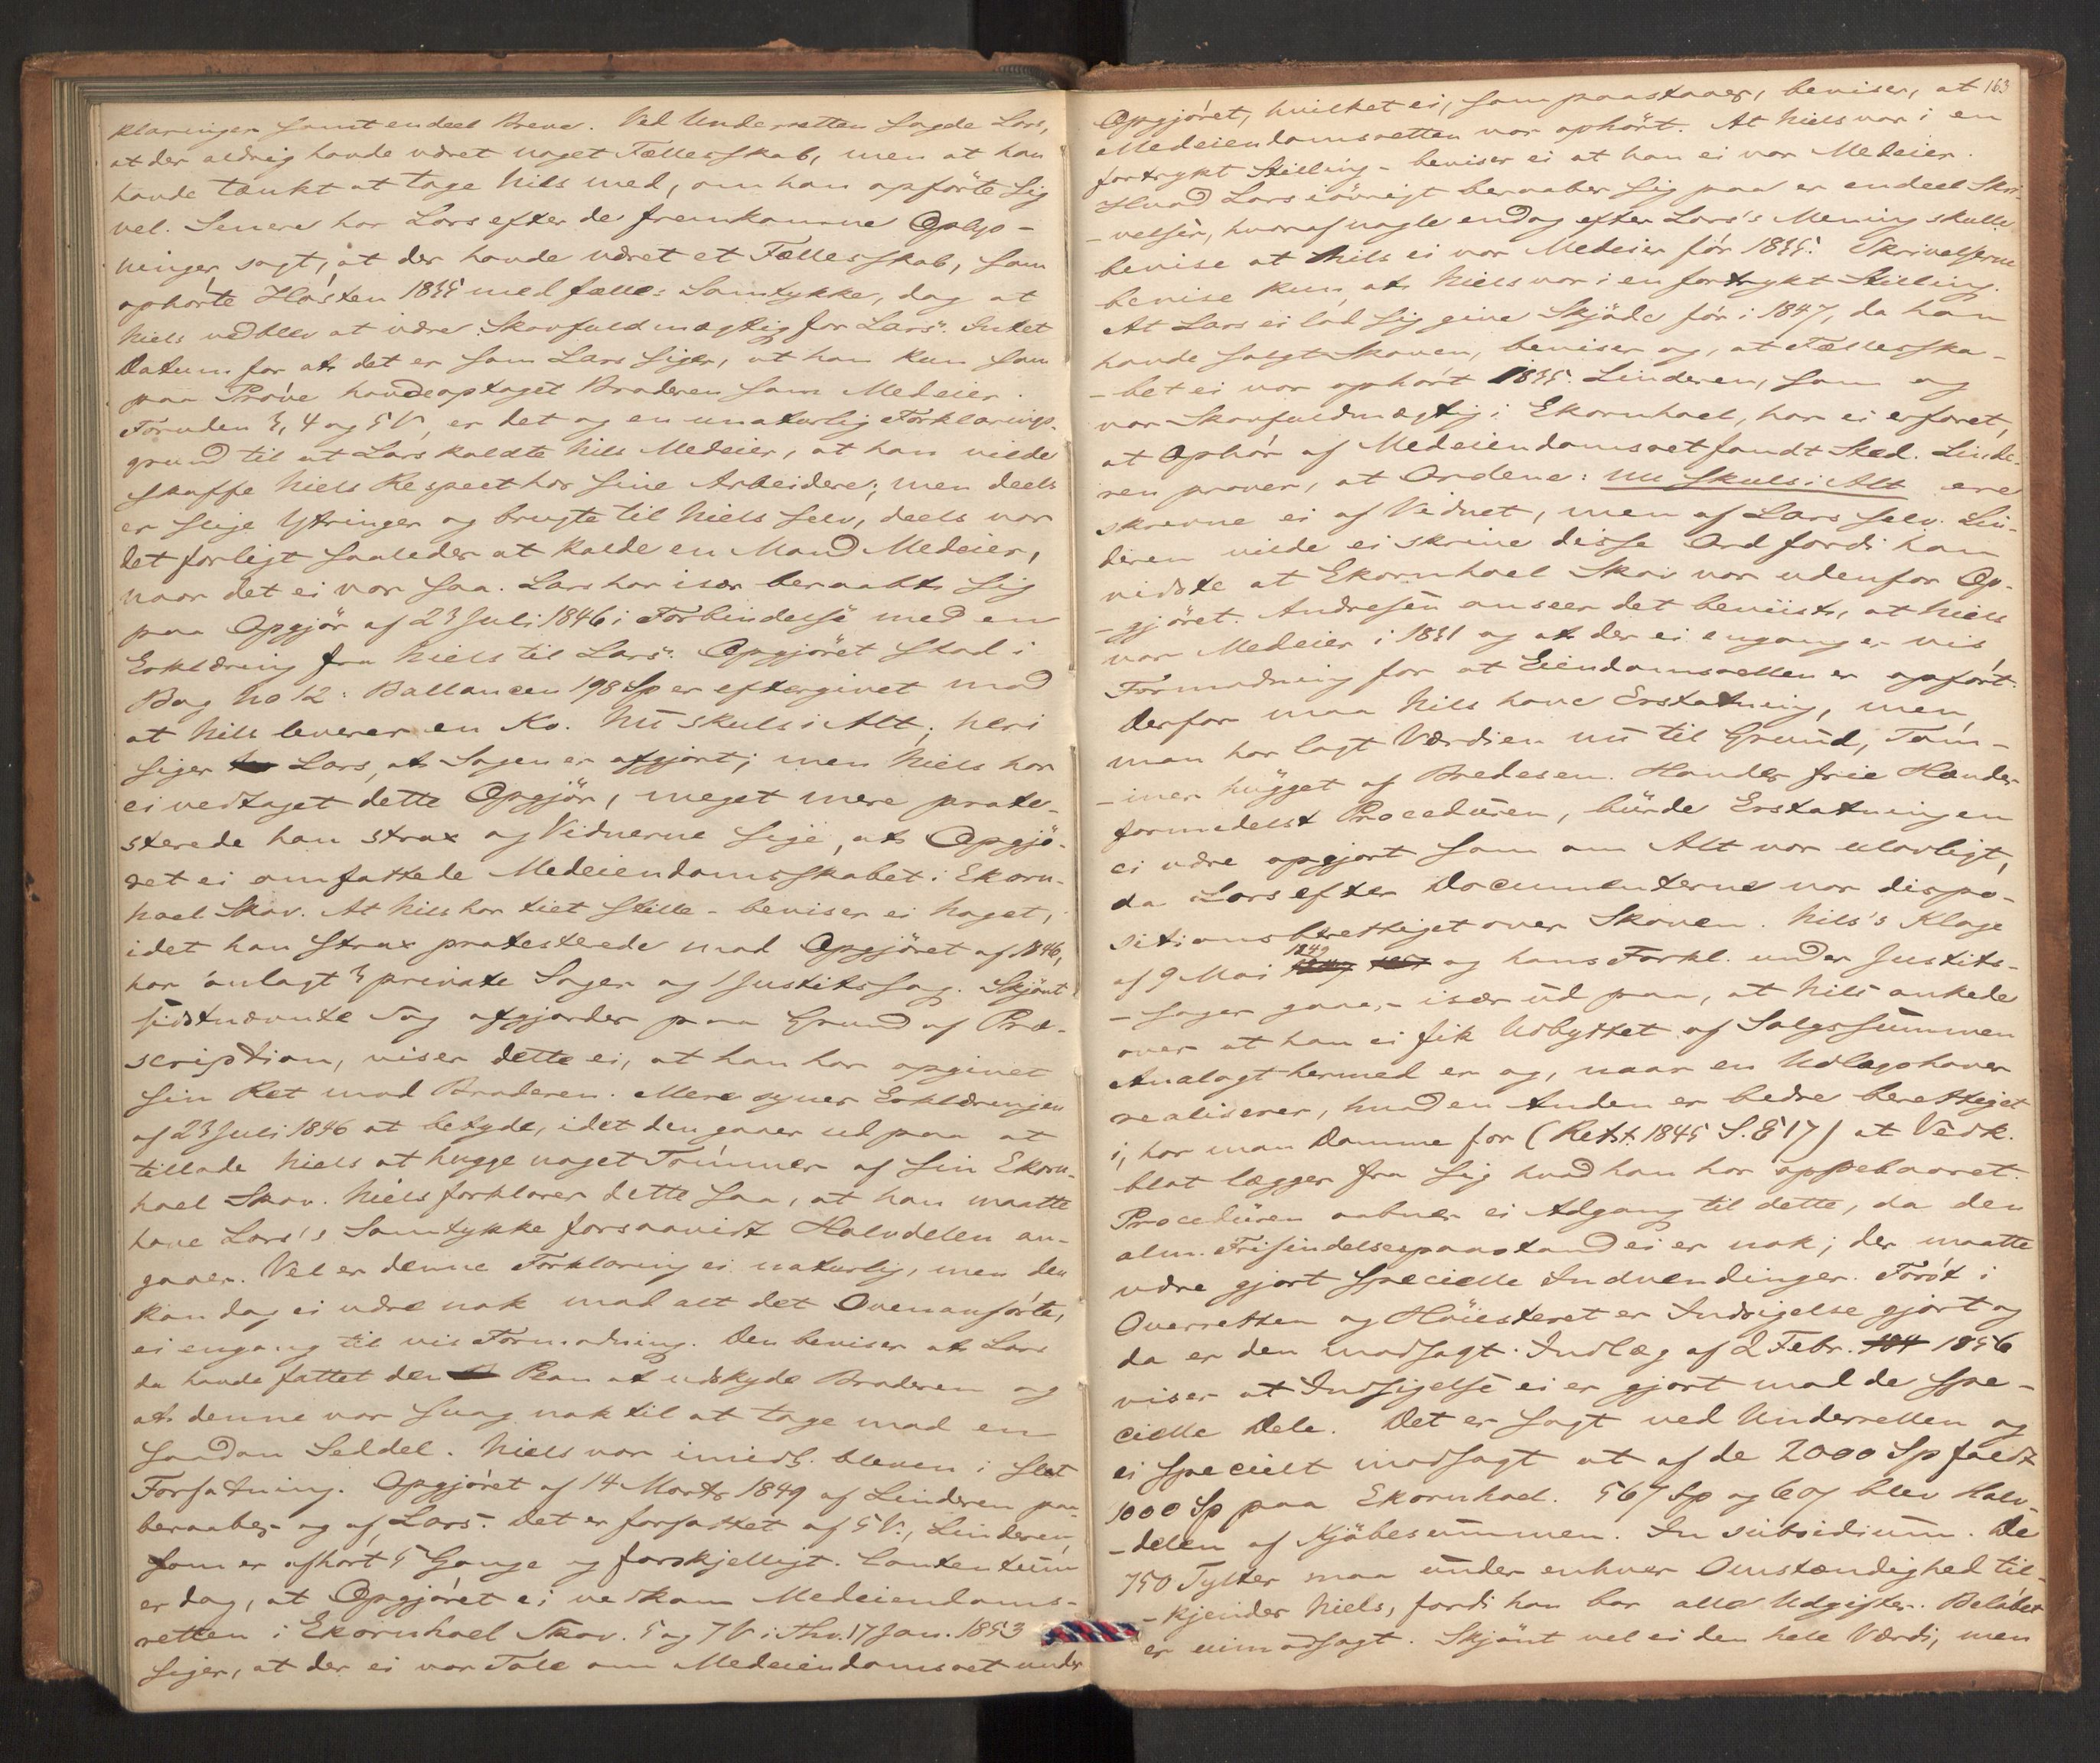 klaringer samt endeel Breve. Ved Underretten sagde Lars,
at der aldrig havde været noget Fællesskab, men at han
havde tænkt at tage Nils med, om han opförte sig
vel. Senere har Lars efter de fremkomne Oplys-
ninger sagt, at der havde været et Fællesskab, som
ophörte Hösten 1835 med fælles Samtykke, dog at
Niels vedblev at være Skovfuldmægtig for Lars. Intet
Datum for at det er som Lars siger, at han kun som
paa Pröve havde optaget Broderen som Medeier.
Foruden 3, 4 og 5 V, er det og en unaturlig Forklarings-
grund til at Lars kaldte Nils Medeier, at han vilde
skaffe Niels Respect hos sine Arbeidere; men deels
er slige Ytringer og brugte til Niels selv, deels var
det farligt saaledes at kalde en Mand Medeier,
naar det ei var saa. Lars har især beraabt sig
paa Opgjör af 23 Juli 1846 i Forbindelse med en
Erklæring fra Niels til Lars. Opgjöret stod i
Bog No 12: Ballancen 198 Sp er eftergivet mod
at Nils leverer en Ko. Nu skuls i Alt; heri
siger Lars, at Sagen er afgjort; men Niels har
ei vedtaget dette Opgjör, meget mere prote-
sterede han strax og Vidnerne sige, at Opgjö-
ret ei omfattede Medeiendomsskabet i Ekorn-
hoel Skov. At Nils har tiet stille - beviser ei Noget,
idet han strax protesterede mod Opgjöret af 1846,
har anlagt 3 private Sager og 1 Justitssag. Skjönt
sidstnævnte Sag afgjordes paa Grund af Præ-
scription, viser dette ei, at han har opgivet
sin Ret mod Broderen. Mere synes Erklæringen
af 23 Juli 1846 at betyde, idet den gaaer ud paa at
tillade Niels at hugge noget Tömmer af sin Ekorn-
hoel Skov. Niels forklarer dette saa, at han maatte
have Lars's Samtykke forsaavidt Halvdelen an-
gaaer. Vel er denne Forklaring ei naturlig, men den
kan dog ei være nok mod alt det Ovenanförte,
ei engang til vis Formodning. Den beviser at Lars
da havde fattet den Plan at udskyde Broderen og
at denne var svag nok til at tage mod en
saadan Seddel. Niels var imidl. bleven i slet
Forfatning. Opgjöret af 14 Marts 1849 af Linderen paa-
beraabes og af Lars. Det er forfattet af 5 V., Linderen,
som er afhört 5 Gange og forskjelligt. Contentum
er dog, at Opgjöret ei vedkom Medeiendoms-
retten i Ekornhoel Skov. 5 og 7 V i Thv. 17 Jan. 1853
siger, at der ei var Tale om Medeiendomsret under
163
Opgjöret, hvilket ei, som paastaaes, beviser, at
Medeiendomsretten var ophört. At Niels var i en
fortrykt Stilling - beviser ei at han ei var Medeier.
Hvad Lars iövrigt beraaber sig paa er endeel Skri-
-velser, hvoraf nogle endog efter Lars's Mening skulle
bevise at Nils ei var Medeier för 1835. Skrivelserne
bevise kun, at Niels var i en fortrykt Stilling.
At Lars ei lod sig give Skjöde för i 1847, da han
havde solgt Skoven, beviser og, at Fællesska-
-bet ei var ophört 1835. Linderen, som og
var Skovfuldmægtig i Ekornhoel, har ei erfaret,
at Ophör af Medeiendomsret fandt Sted. Linde-
ren prover, at Ordene: nu skuls i Alt ere
skrevne ei af Vidnet, men af Lars selv. Lin-
deren vilde ei skrive disse Ord fordi han
vidste at Ekornhoel Skov var udenfor Op-
-gjöret. Andresen anseer det beviist, at Niels
var Medeier i 1831 og at der ei engang er vis
Formodning for at Eiendomsretten er ophört.
Derfor maa Nils have Erstatning, men
man har lagt Værdien nu til Grund, Töm-
-mer hugget af Bredesen. Havdes frie Hænder
formedelst Proceduren, burde Erstatningen
ei være opgjort som om Alt var ulovligt,
da Lars efter Documenterne var dispo-
sitionsberettiget over Skoven. Nils's Klage
af 9 Mai 1849 og hans Forkl. under Justits-
-sagen gaae, - især ud paa, at Nils ankede
over at han ei fik Udbyttet af Salgssummen
Analogt hermed er og, naar en Udlægshaver
realiserer, hvad en Anden er bedre berettiget
i, har man Domme for (Retst. 1845 S. 817) at Vedk.
blot lægger fra sig hvad han har oppebaaret.
Proceduren aabner ei Adgang til dette, da den
alm. Frifindelsespaastand ei er nok; der maatte
være gjort specielle Indvendinger. Först i
Overretten og Höiesteret er Indsigelse gjort og
da er den modsagt. Indlæg af 2 Febr. 1856
viser at Indsigelse ei er gjort mod de spe-
cielle Dele. Det er sagt ved Underretten og
ei specielt modsagt at af de 2000 Sp faldt
1000 Sp paa Ekornhoel. 567 Sp og 60 β blev Halv-
-delen af Kjöbesummen. In subsidium. De
750 Tylter maa under enhver Omstændighed til-
-kjendes Niels, fordi han bar alle Udgifter. Belöbet
er uimodsagt. Skjönt vel ei den hele Værdi, men